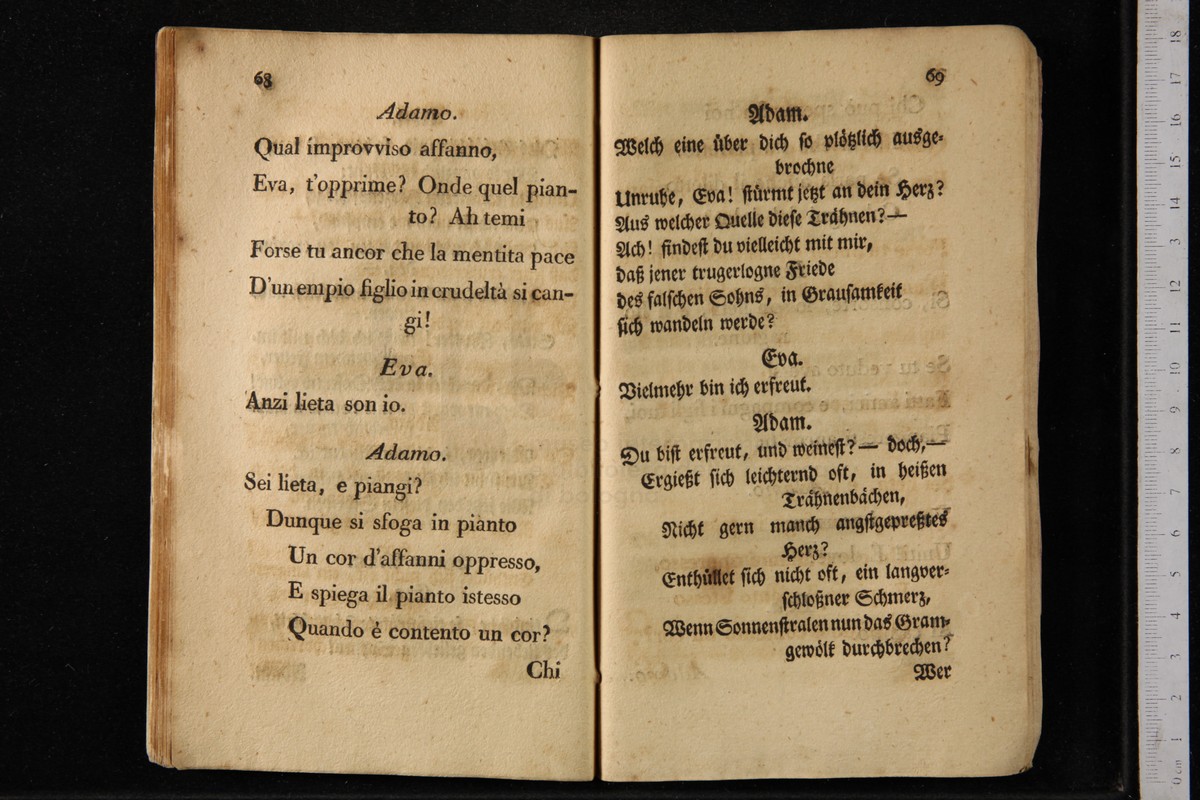 68
Adamo.
Qual improvviso affanno,
Eva, t'opprime? Onde quel pian-
to? Ah temi
Forse tu ancor che la mentita pace
D'un empio figlio in crudeltà si can-
gi!
Eva.
Anzi lieta son io.
Adamo.
Sei lieta, e piangi?
Dunque si sfoga in pianto
Un cor d'affanni oppresso,
E spiega il pianto istesso
Quando é contento un cor?
Chi
69
Adam.
Welch eine über dich so plötzlich ausge-
brochne
Unruhe, Eva! stürmt jetzt an dein Herz?
Aus welcher Quelle diese Trähnen?—
Ach! findest du vielleicht mit mir,
daß jener trugerlogne Friede
des falschen Sohns, in Grausamkeit
sich wandeln werde?
Eva.
Vielmehr bin ich erfreut.
Adam.
Du bist erfreut, und weinest?— doch,—
Ergießt sich leichternd oft, in heißen
Trähnenbächen,
Nicht gern manch angstgepreßtes
Herz?
Enthüllet sich nicht oft, ein langver-
schloßner Schmerz,
Wenn Sonnenstralen nun das Gram-
gewölk durchbrechen?
Wer
18
17
16
15
14
13
12
11
10
9
8
7
6
5
4
3
2
1
0 cm